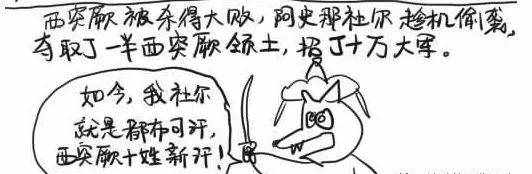 西突厥被杀得大败，阿史那社尔趁机偷袭，
夺取了一半西突厥领土，招了十万大军。
如今，我社尔
就是都布可汗，
西突厥十姓新汗！